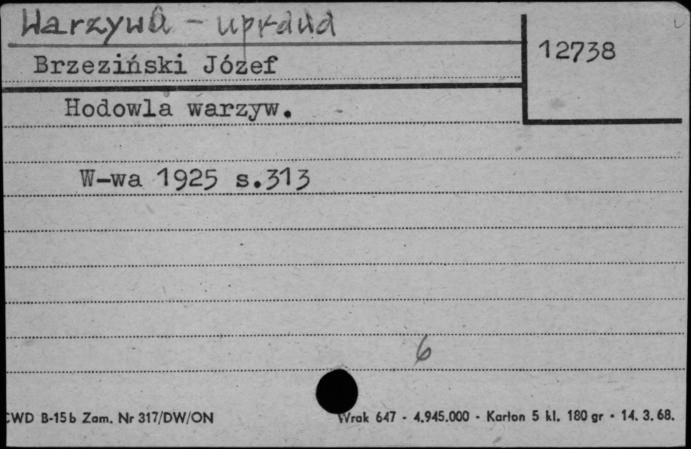 Warzywa - uprawa
12738
Brzeziński Józef
Hodowla warzyw.
W-wa 1925 s.313
6
CWD B-15b Zam. Nr 317/DW/ON Wrak 647 - 4.945.000 - Karton 5 kl. 180 gr - 14. 3. 68.